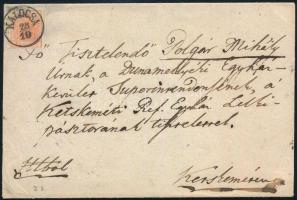 KALOCSA
28
10
Fő Tisztelendő Polgár Mihály
Urnak, a Dunamelléki Egyház-
kerület Superintendensének, a
Kecskeméti Ref. Egyház Lelki-
pásztorának tisztelettel.
Kecskeméten